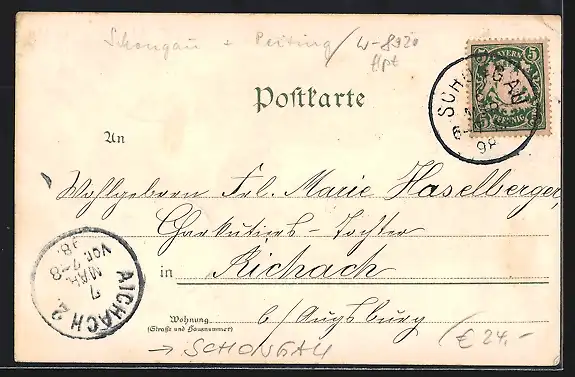 Schongau + Peiting / W-8920
Hpt
BAYERN
5 5
PFENNIG
SCHONGAU
98
Postkarte
An
Wohlgeborn Frl. Marie Haselberger,
Charkutiers-Tochter
in Aichach
Wohnung
(Straße und Hausnummer)
b/Augsburg
AICHACH 2.
7
MAR
VOR. 7-8
98.
→ SCHONGAU
(€ 24,-